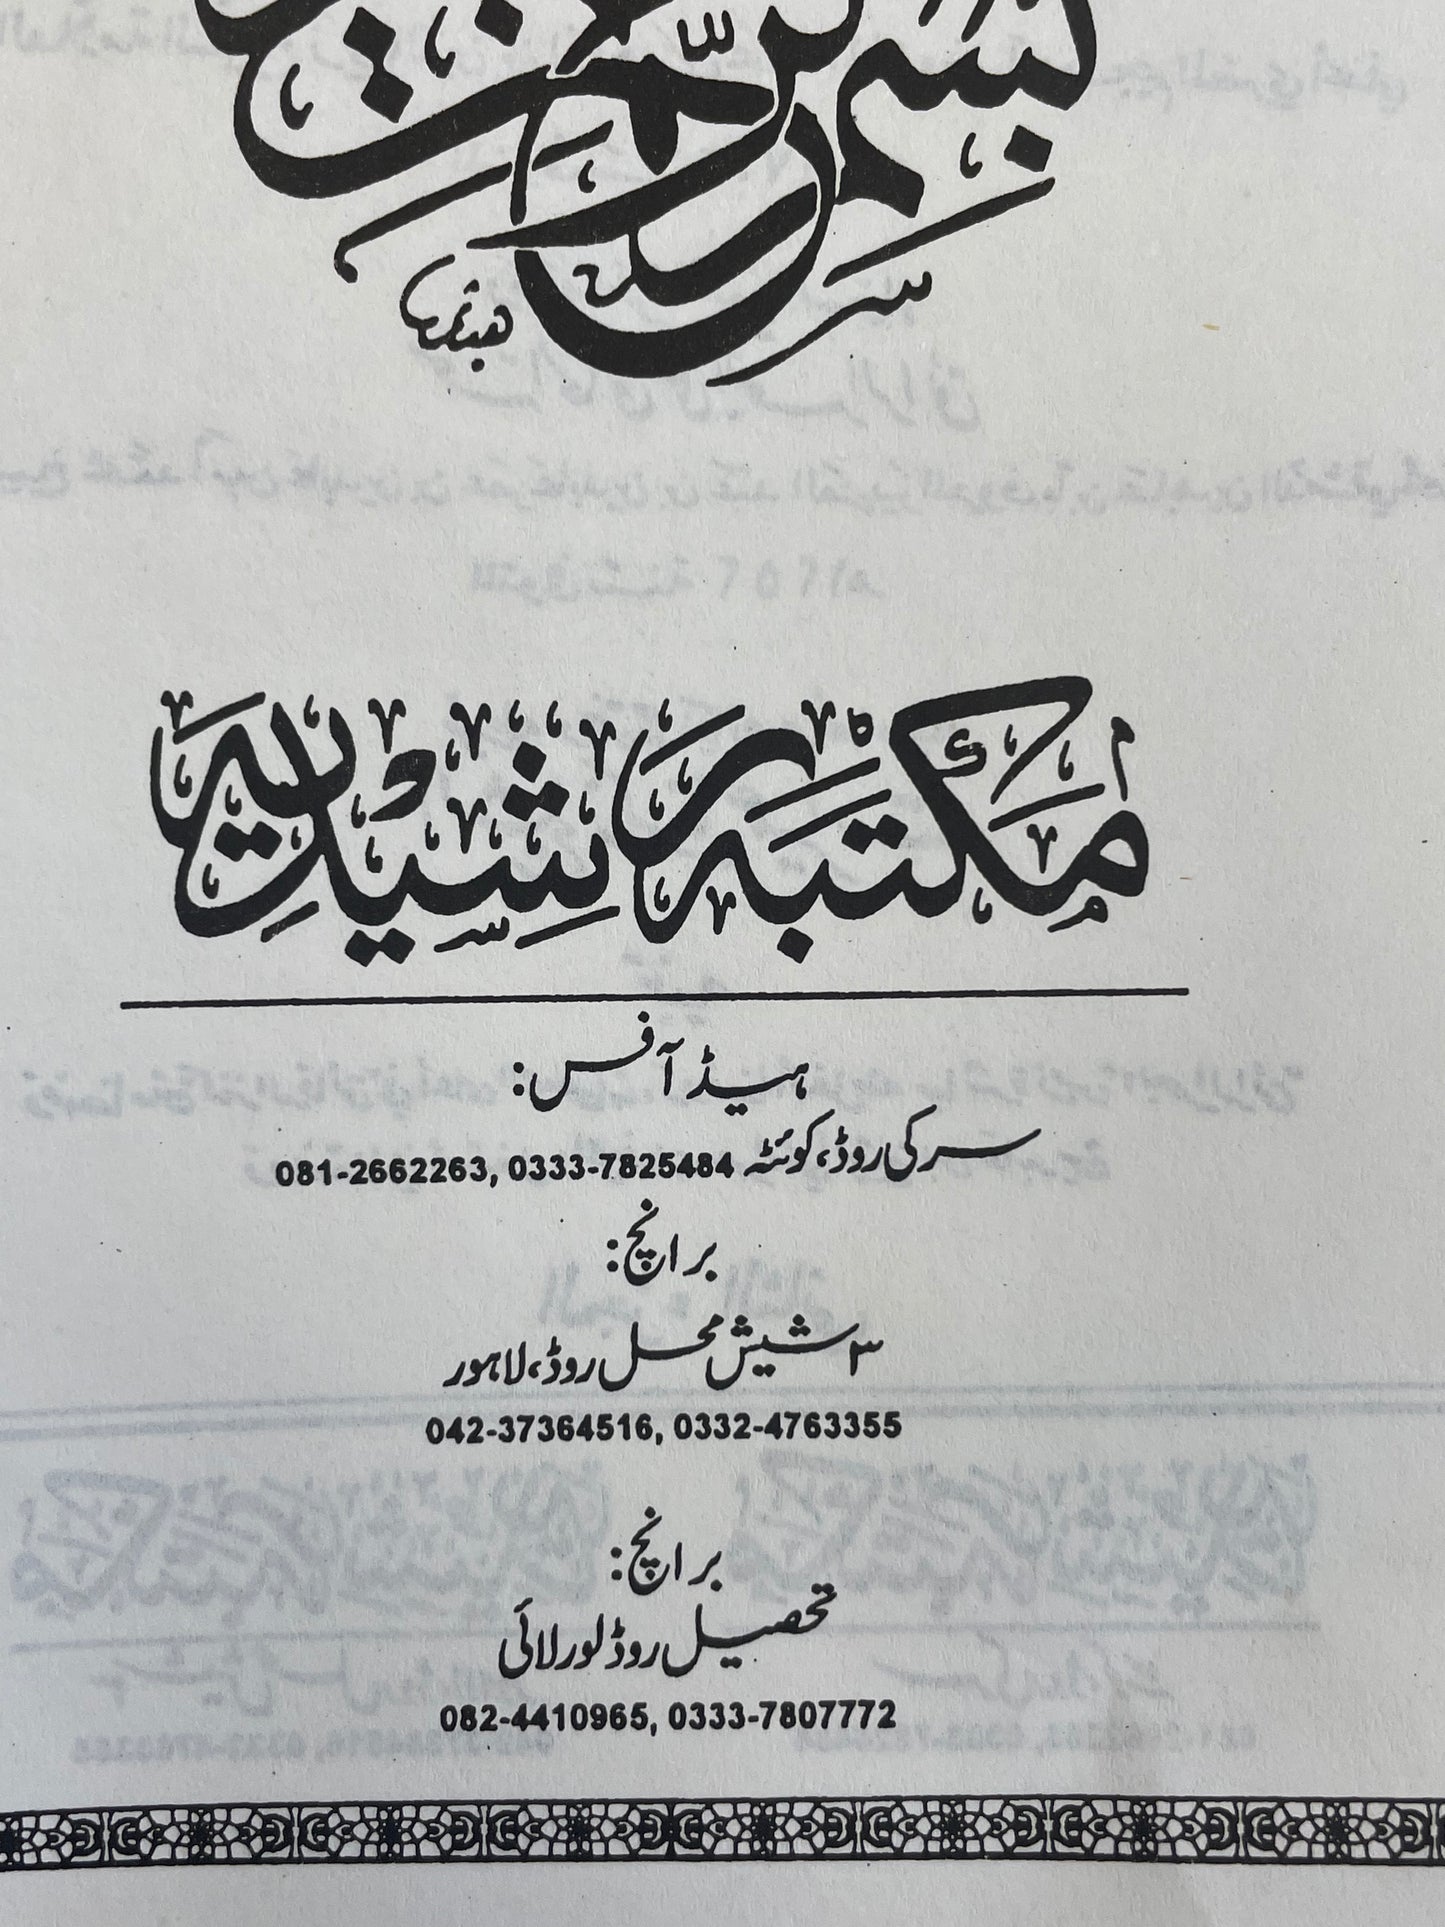 بسم
مکتبہ رشیدیہ
ہیڈ آفس:
سرکی روڈ، کوئٹہ 081-2662263, 0333-7825484
برانچ:
۳ شیش محل روڈ، لاہور
042-37364516, 0332-4763355
برانچ:
تحصیل روڈ لورلائی
082-4410965, 0333-7807772